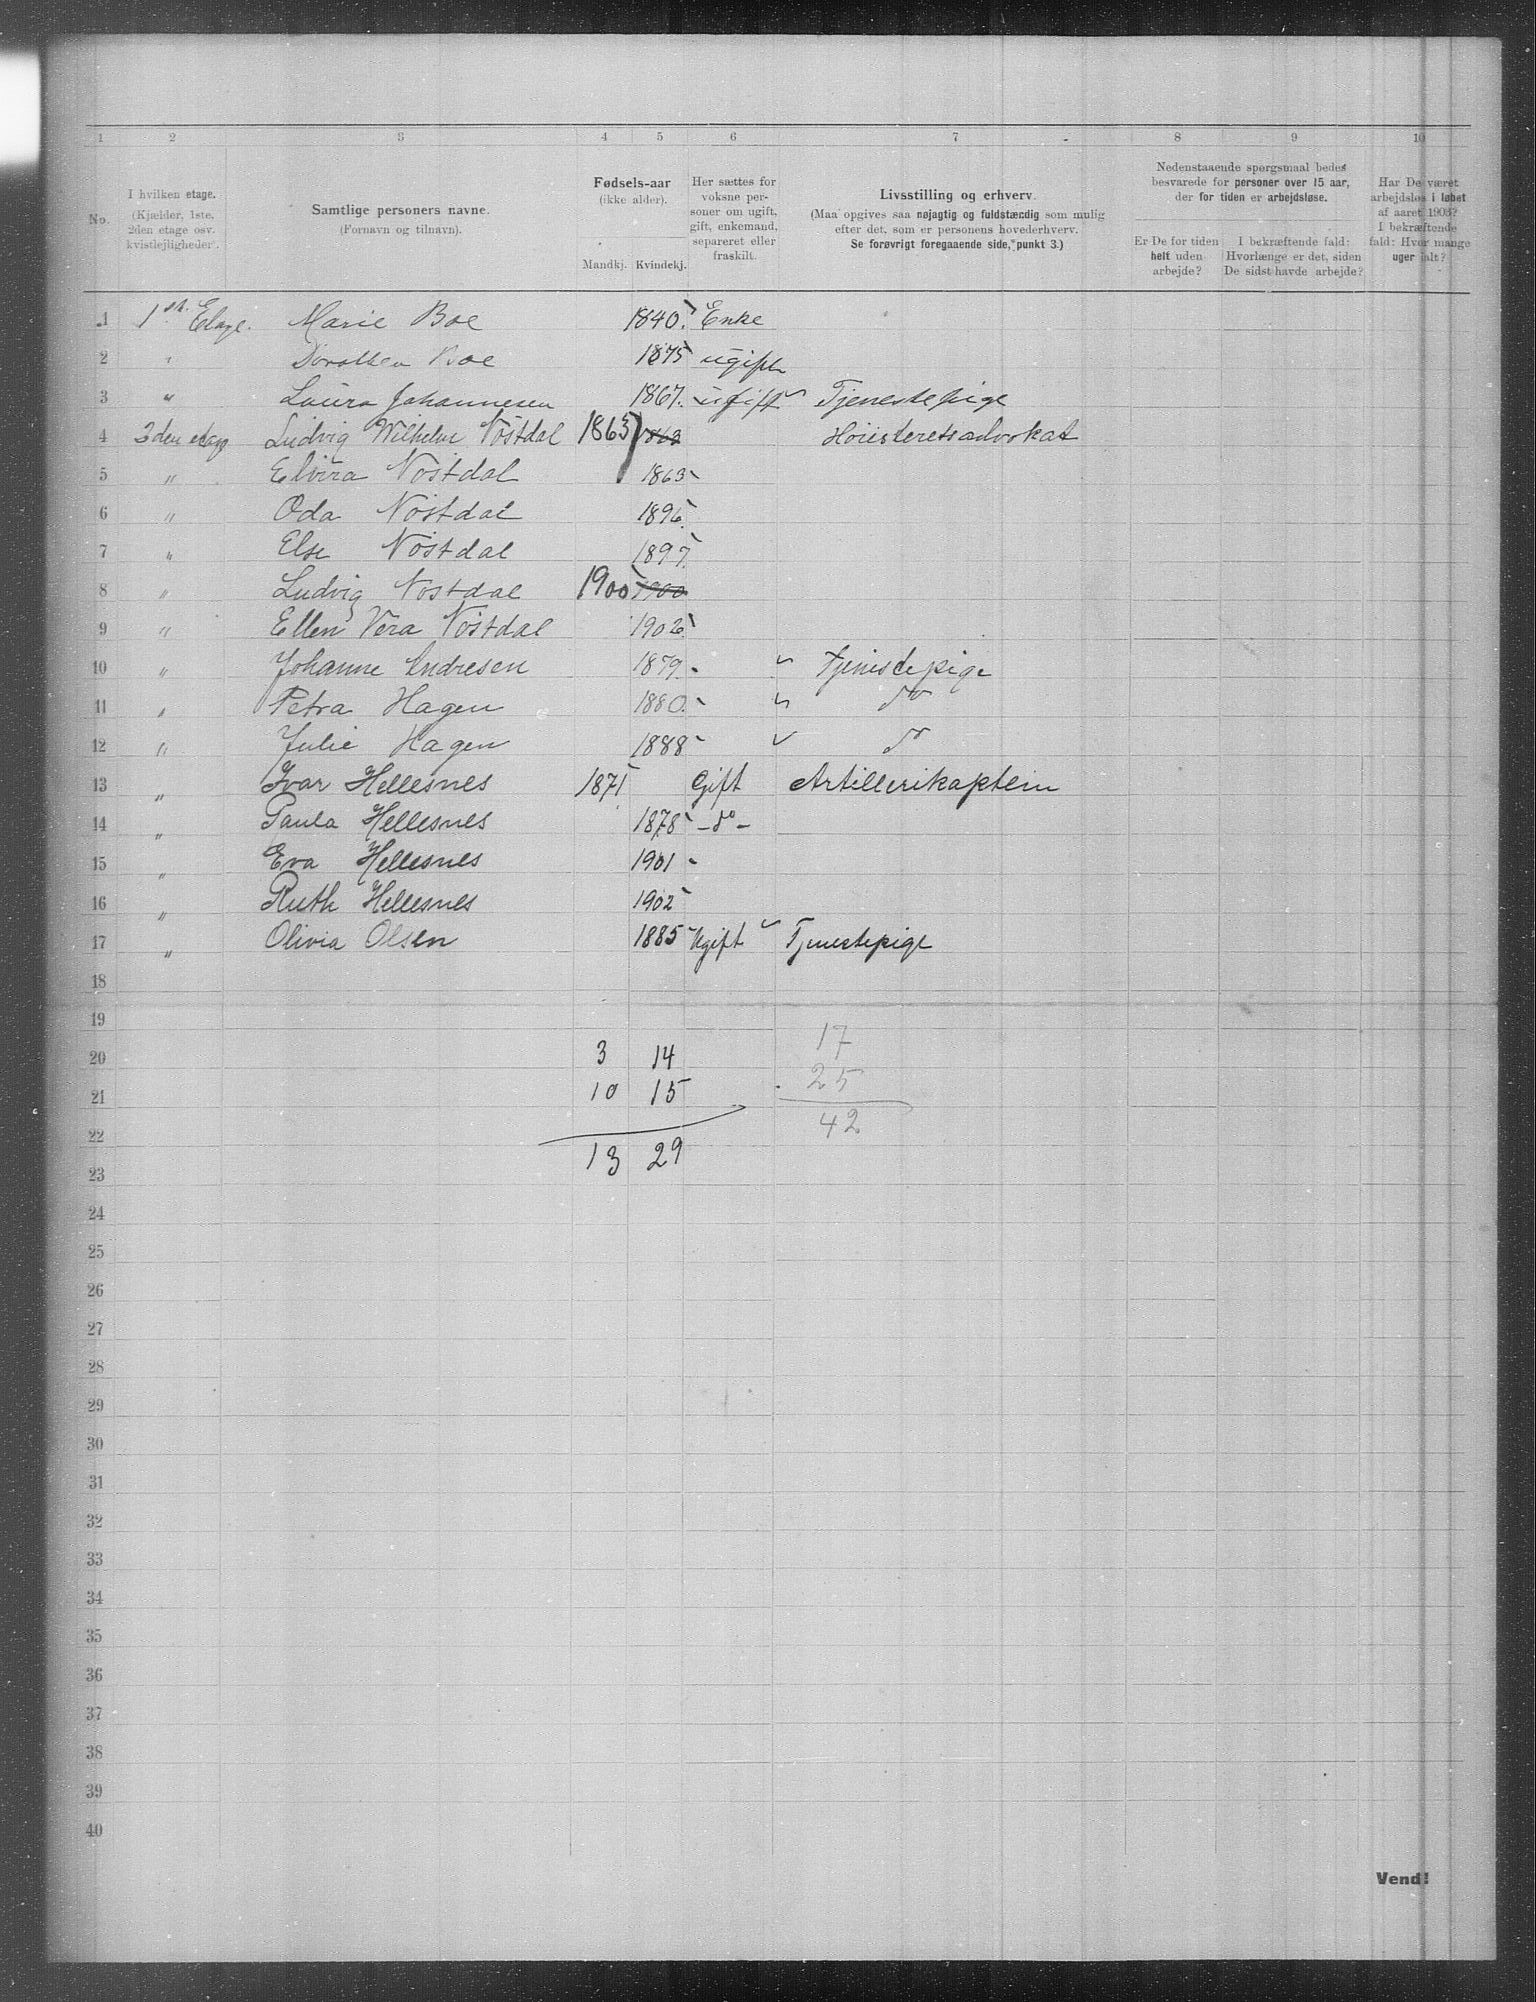 1 2 3 4 5 6 7 8 9 10
No.
I hvilken etage.
(Kjælder, 1ste,
2den etage osv.
kvistlejligheder).
Samtlige personers navne.
(Fornavn og tilnavn).
Fødsels-aar
(ikke alder).
Mandkj. Kvindekj.
Her sættes for
voksne per-
soner om ugift,
gift, enkemand,
separeret eller
fraskilt.
Livsstilling og erhverv.
(Maa opgives saa nøjagtig og fuldstændig som mulig
efter det, som er personens hovederhverv.
Se forøvrigt foregaaende side, punkt 3.)
Nedenstaaende spørgsmaal bedes
besvarede for personer over 15 aar,
der for tiden er arbejdsløse.
Er De for tiden
helt uden
arbejde?
I bekræftende fald:
Hvorlænge er det, siden
De sidst havde arbejde?
Har De været
arbejdsløs i løbet
af aaret 1903?
I bekræftende
fald: Hvor mange
uger ialt?
1 1ste Etage. Marie Boe 1840. Enke
2 " Dorothea Boe 1875 ugift
3 " Laura Johannesen 1867. ugift Tjenestepige
4 2den etage Ludvig Wilhelm Nöstdal 1863 1863 Höiesteretsadvokat
5 " Elvira Nöstdal 1863
6 " Oda Nöstdal 1896.
7 " Else Nöstdal 1897.
8 " Ludvig Nöstdal 1900 1900
9 " Ellen Vera Nöstdal 1902.
10 " Johanne Andresen 1879. Tjenistepige
11 " Petra Hagen 1880. do
12 " Julie Hagen 1888 do
13 " Ivar Hellesnes 1871 Gift Artillerikaptein
14 " Paula Hellesnes 1878 -do-
15 " Eva Hellesnes 1901
16 " Ruth Hellesnes 1902
17 " Olivia Olsen 1885 Ugift Tjenestepige
18
19
20 3 14 17
21 10 15 25
22 42
23 13 29
24
25
26
27
28
29
30
31
32
33
34
35
36
37
38
39
40
Vend!